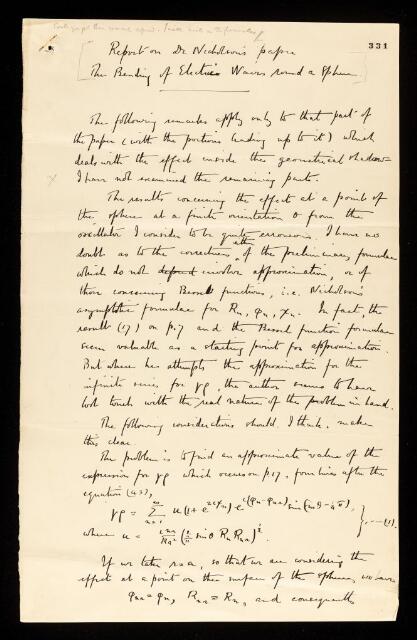 331
Report on Dr Nicholson's paper
The Bending of Electric Waves round a Sphere
The following remarks apply only to that part of
the paper (with the portions leading up to it) which
deals with the effect inside the geometrical shadow
I have not examined the remaining parts.
The results concerning the effect at a point of
the sphere at a finite orientation θ from the
oscillator I consider to be quite erroneous. I have no
doubt as to the correctness either of the preliminary formulae
which do not depend involve approximation, or of
those concerning Bessel functions, i.e. Nicholson's
asymptotic formulae for Rn, φn, χn. In fact, the
result (17) on p.7 and the Bessel function formulae
seem valuable as a starting point for approximation.
But where he attempts the approximation for the
infinite series for γρ, the author seems to have
lost touch with the real nature of the problem in hand.
The following considerations should, I think, make
this clear.
The problem is to find an approximate value of the
expression for γρ which occurs on p.17, four lines after the
equation (43),
γρ = ∑ u(1+e^{2iχn}) e^{i(φn-φna)} sin(mθ-¼π),
n=1
} ... (1).
where u =
If we take r=a, so that we are considering the
effect at a point on the surface of the sphere, we have
φna = φn, Rna = Rn, and consequently